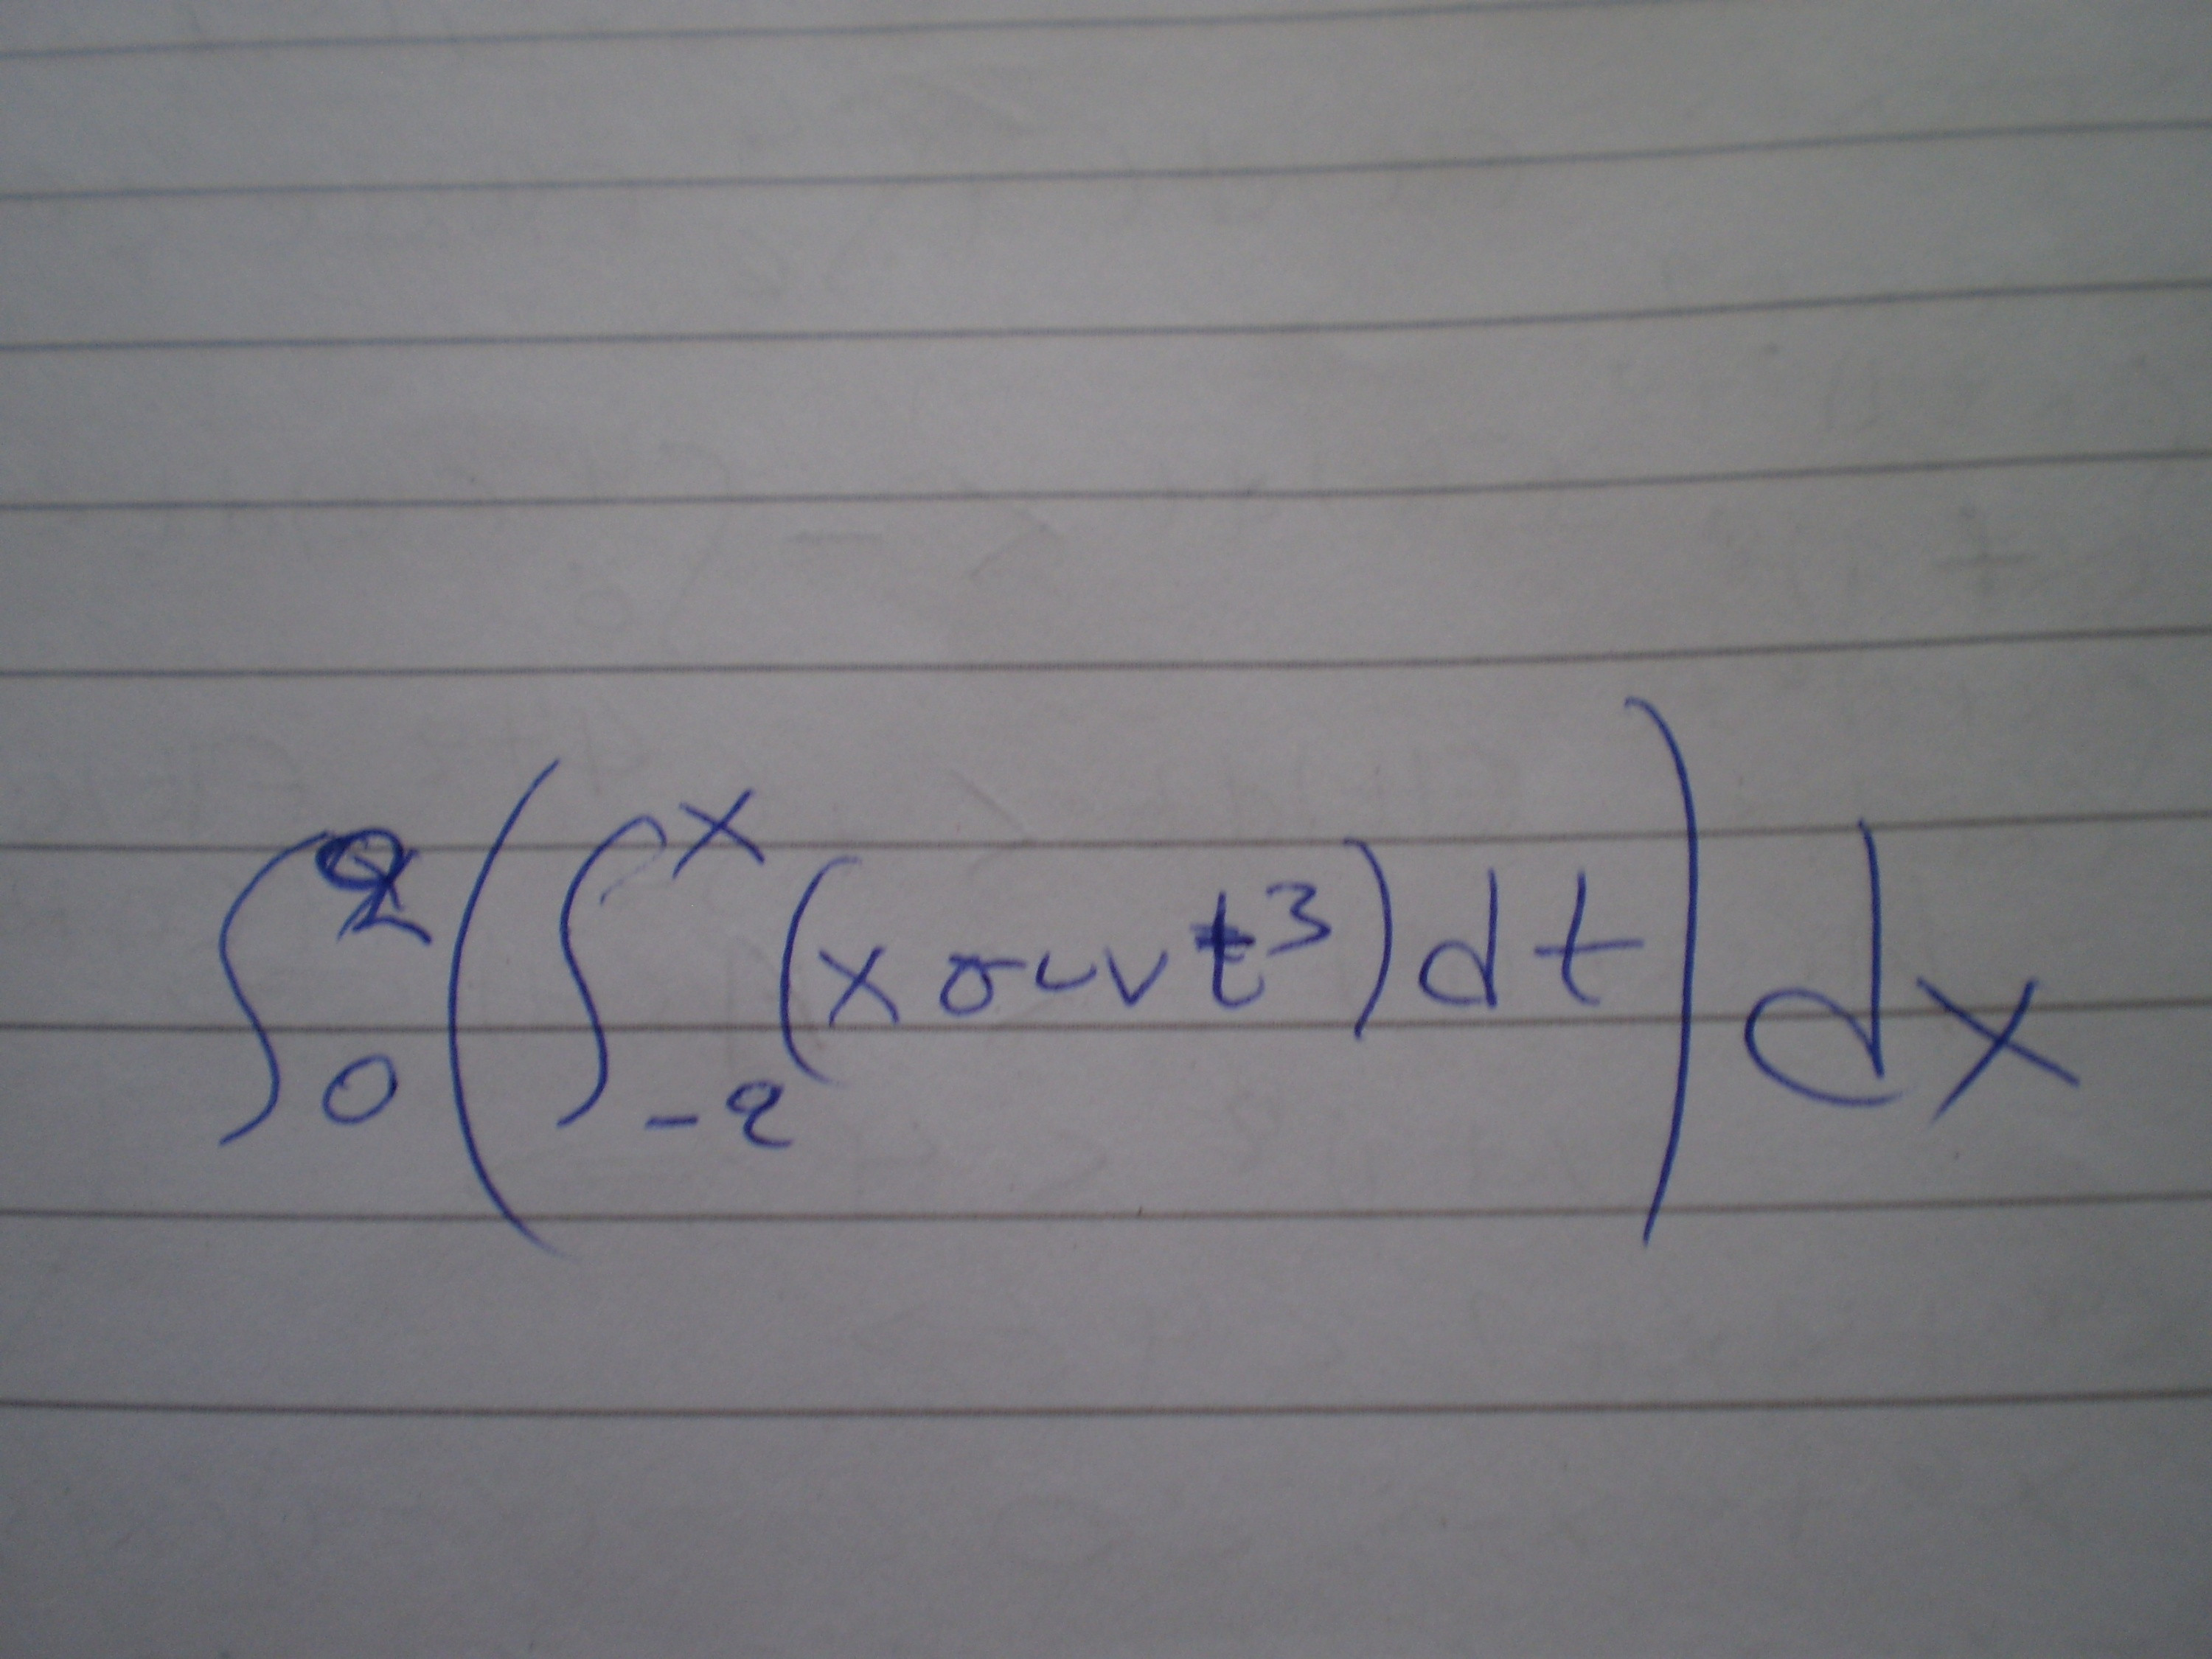 ∫₀² (∫₋₂ˣ (x συν t³) dt) dx